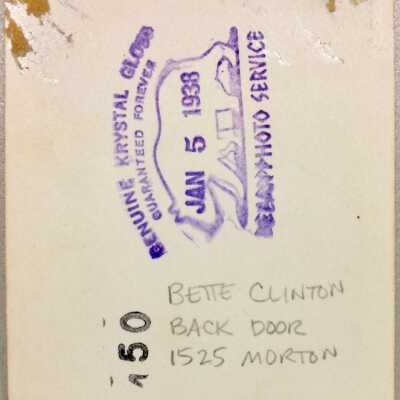 GENUINE KRYSTAL GLOSS
GUARANTEED FOREVER
JAN 5 1938
PHOTO SERVICE
50
BETTE CLINTON
BACK DOOR
1525 MORTON